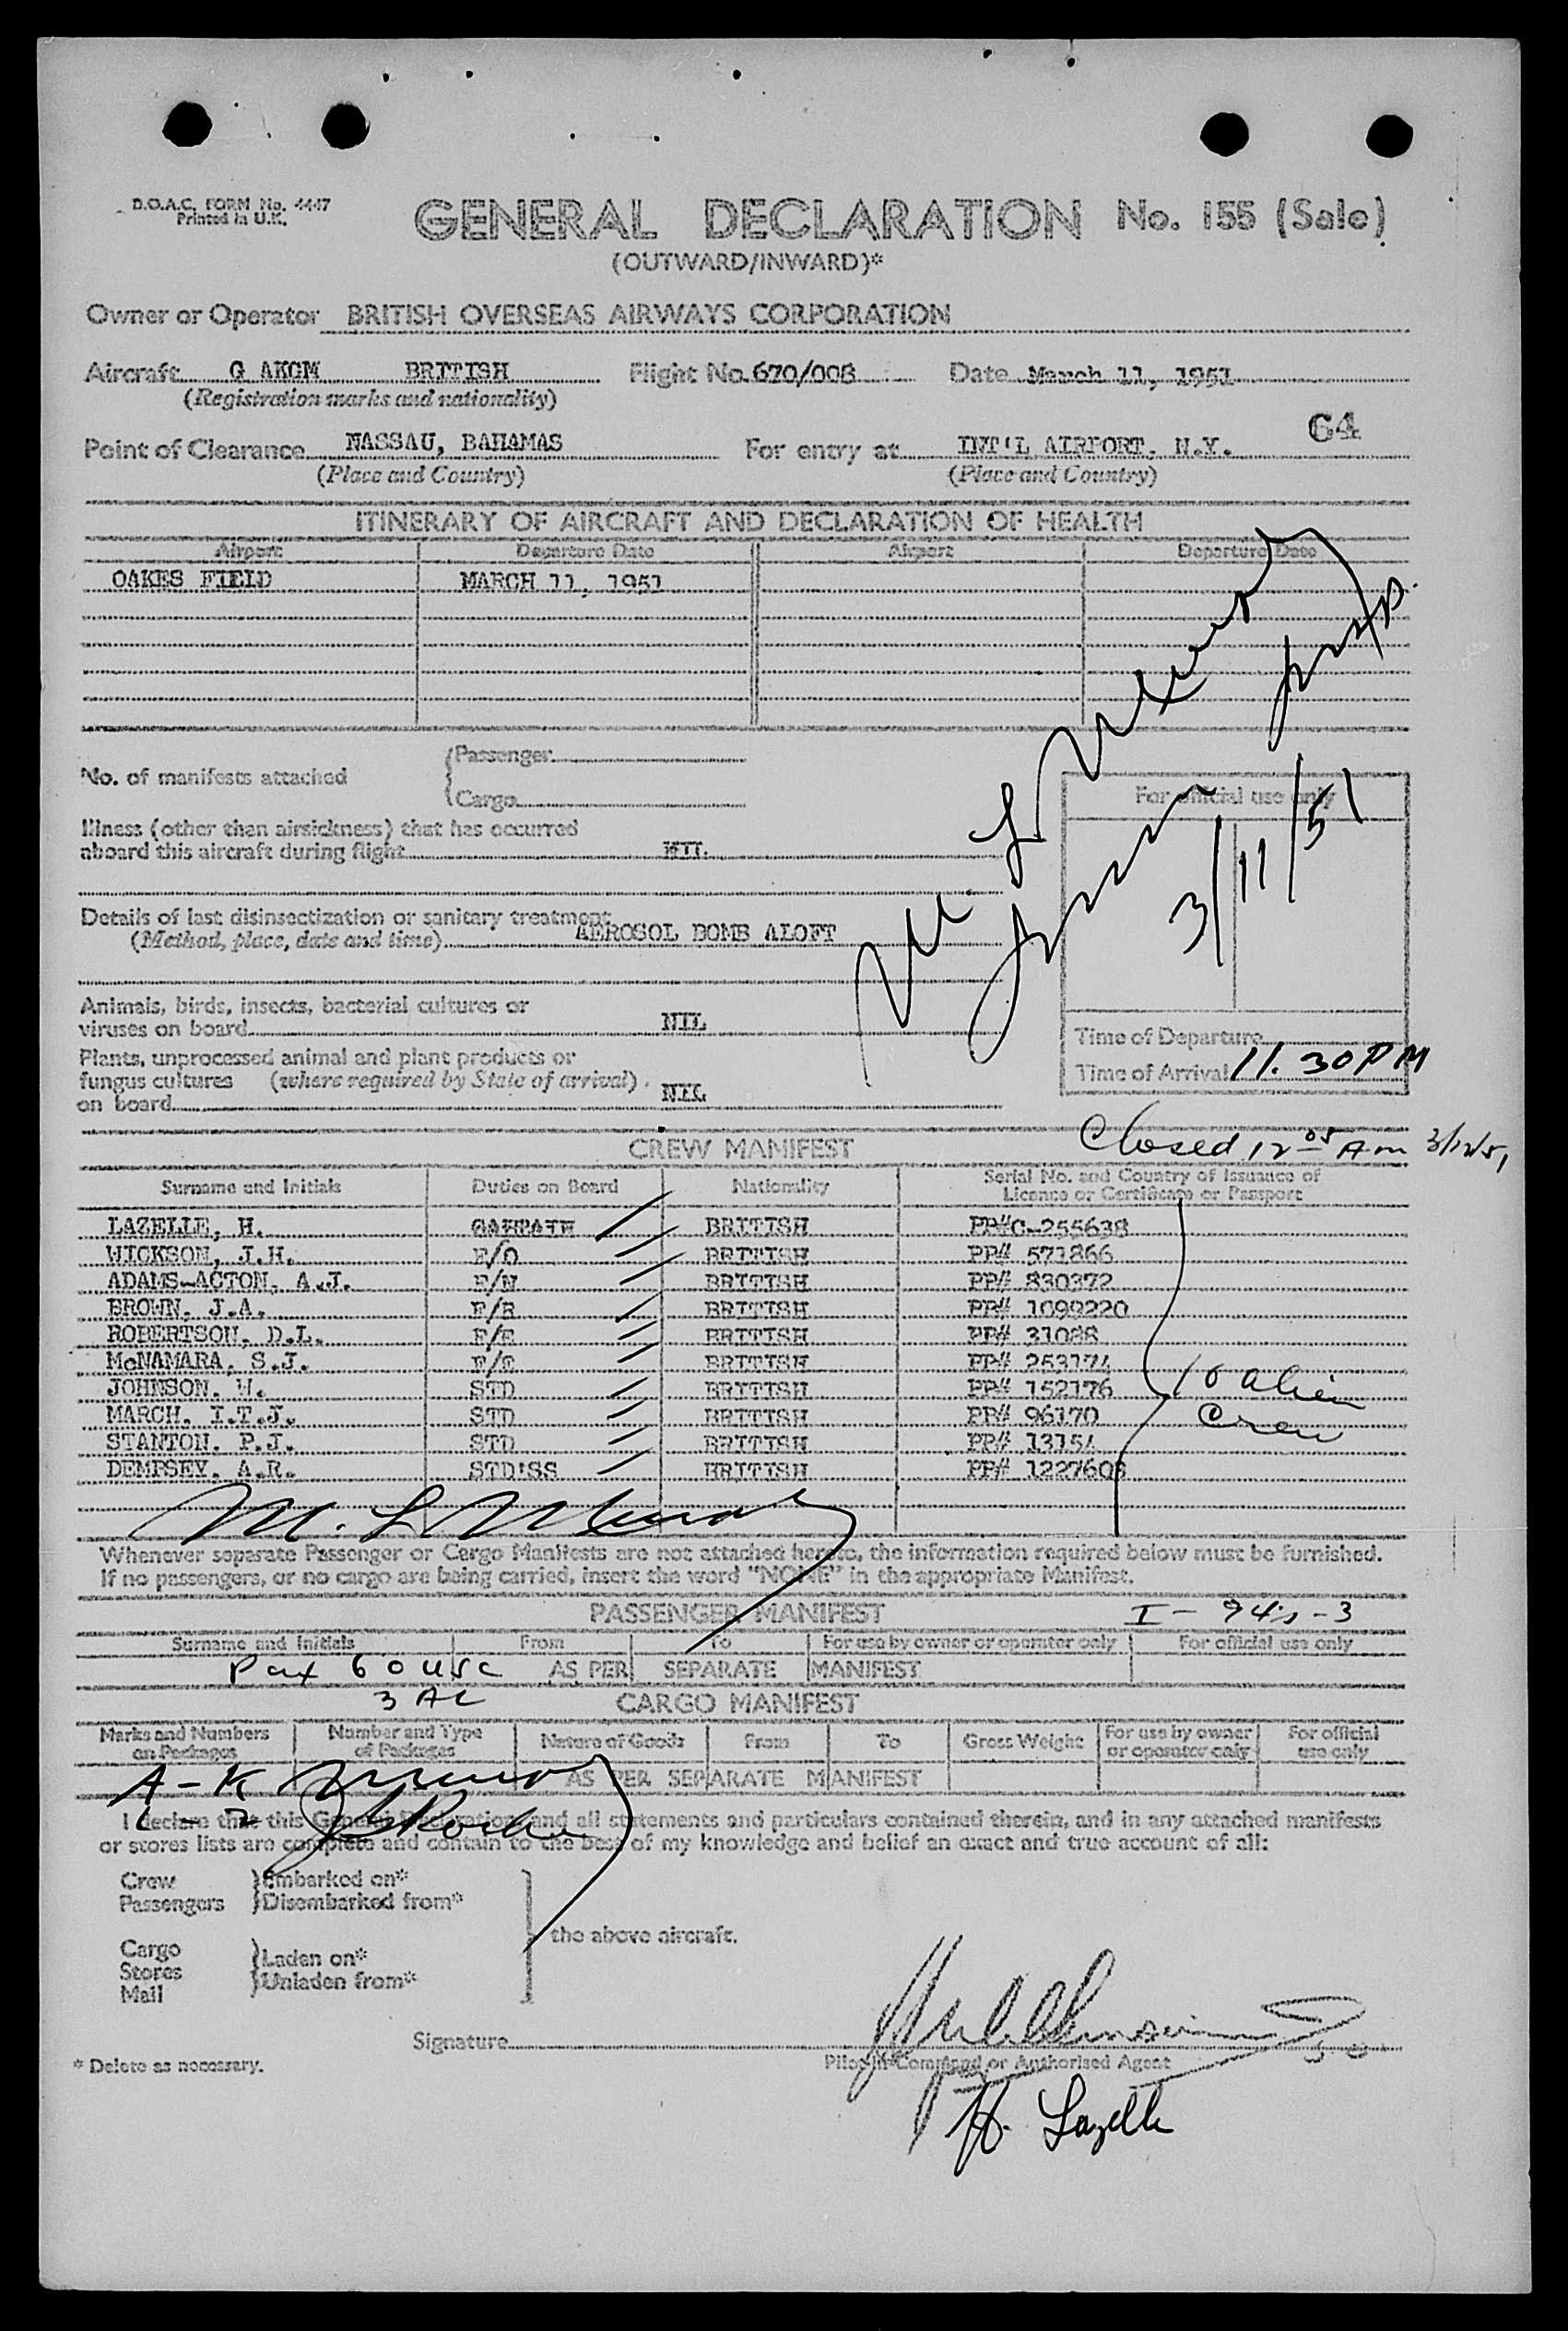 B.O.A.C. FORM No. 4447
Printed in U.K.
GENERAL DECLARATION No. 155 (Sale)
(OUTWARD/INWARD)*
Owner or Operator BRITISH OVERSEAS AIRWAYS CORPORATION
Aircraft G AKGM BRITISH Flight No. 670/008 Date March 11, 1951
(Registration marks and nationality)
64
Point of Clearance NASSAU, BAHAMAS For entry at INT'L AIRPORT, N.Y.
(Place and Country) (Place and Country)
ITINERARY OF AIRCRAFT AND DECLARATION OF HEALTH
Airport Departure Date Airport Departure Date
OAKES FIELD MARCH 11, 1951
No. of manifests attached
Passenger
Cargo
For official use only
3/11/51
Illness (other than airsickness) that has occurred
aboard this aircraft during flight NIL
Details of last disinsectization or sanitary treatment
(Method, place, date and time) AEROSOL BOMB ALOFT
Animals, birds, insects, bacterial cultures or
viruses on board NIL
Plants, unprocessed animal and plant products or
fungus cultures (where required by State of arrival)
on board NIL
Time of Departure
Time of Arrival 11.30 PM
Closed 12 05 Am 3/12/51
CREW MANIFEST
Surname and Initials Duties on Board Nationality Serial No. and Country of Issuance of
Licence or Certificate or Passport
LAZELLE, H. CAPTAIN BRITISH PP#C-255638
WICKSON, J.H. F/O BRITISH PP# 571866
ADAMS-ACTON, A.J. F/N BRITISH PP# 830372
BROWN, J.A. F/R BRITISH PP# 1099220
ROBERTSON, D.L. F/E BRITISH PP# 31088
McNAMARA, S.J. F/E BRITISH PP# 253174
JOHNSON, W. STD BRITISH PP# 152176
MARCH, I.T.J. STD BRITISH PP# 96170
STANTON, P.J. STD BRITISH PP# 13154
DEMPSEY, A.R. STD'SS BRITISH PP# 1227608
10 alien
Crew
Whenever separate Passenger or Cargo Manifests are not attached hereto, the information required below must be furnished.
If no passengers, or no cargo are being carried, insert the word "NONE" in the appropriate Manifest.
PASSENGER MANIFEST I - 94's - 3
Surname and Initials From To For use by owner or operator only For official use only
Pax 60 USC AS PER SEPARATE MANIFEST
3 AL
CARGO MANIFEST
Marks and Numbers on Packages Number and Type of Packages Nature of Goods From To Gross Weight For use by owner or operator only For official use only
A - K AS PER SEPARATE MANIFEST
L - Z
I declare that this General Declaration, and all statements and particulars contained therein, and in any attached manifests
or stores lists are complete and contain to the best of my knowledge and belief an exact and true account of all:
Crew
Passengers
Embarked on*
Disembarked from*
the above aircraft.
Cargo
Stores
Mail
Laden on*
Unladen from*
Signature
* Delete as necessary.
Pilot in Command or Authorised Agent
H. Lazelle